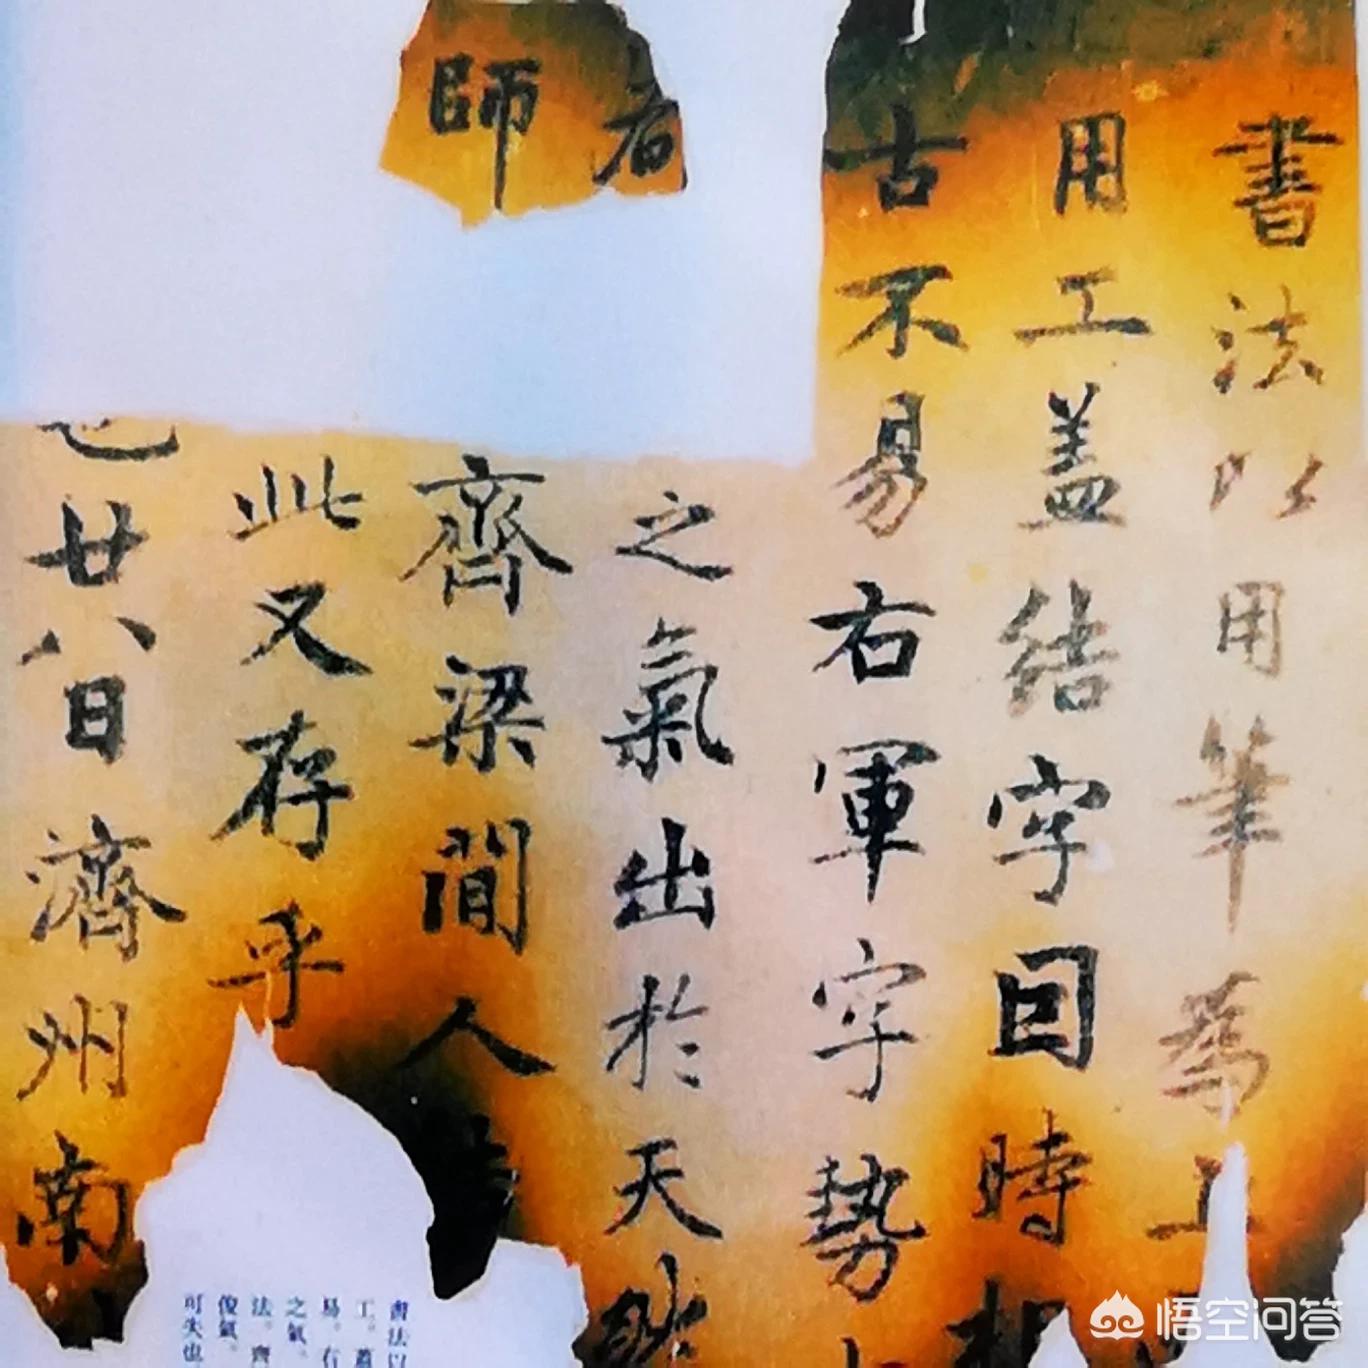 書法以用筆為上
用工盖結字囙時相
古不易右軍字勢
之氣出於天然
師
齊梁間人
此又存乎
也廿八日濟州南
書法以
工。蓋
易。右
之氣。
法。齊
俊氣。
可失也
悟空问答